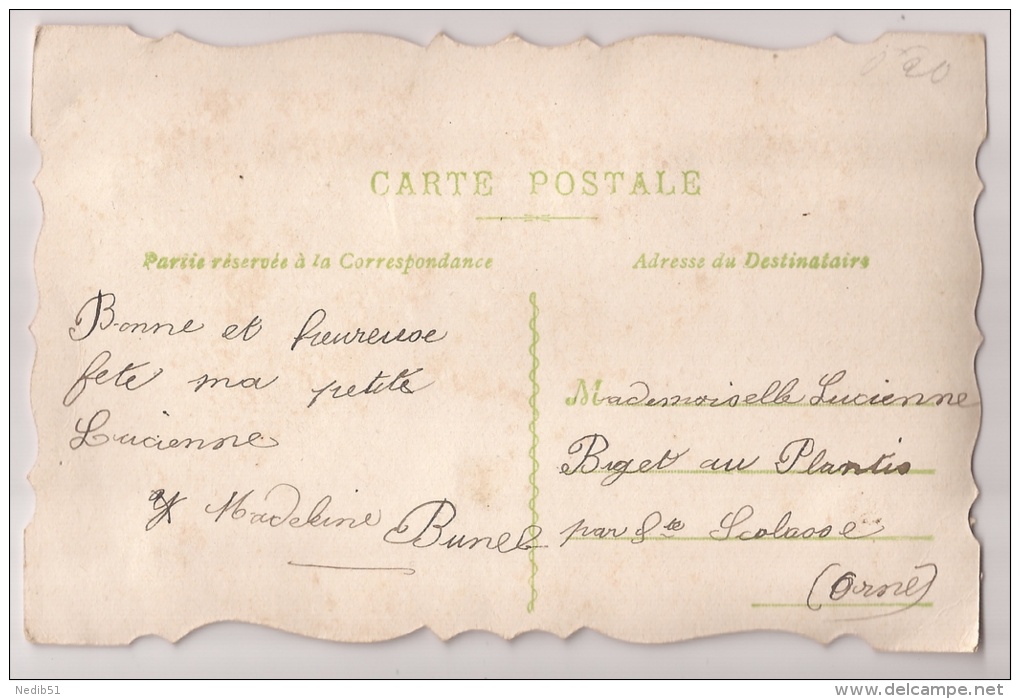 CARTE POSTALE
Partie réservée à la Correspondance
Adresse du Destinataire
Bonne et heureuse
fete ma petite
Lucienne
Madeleine
Bunel
Mademoiselle Lucienne
Biget au Plantis
par Ste Scolasse
(Orne)
Nedib51
delcampe.net